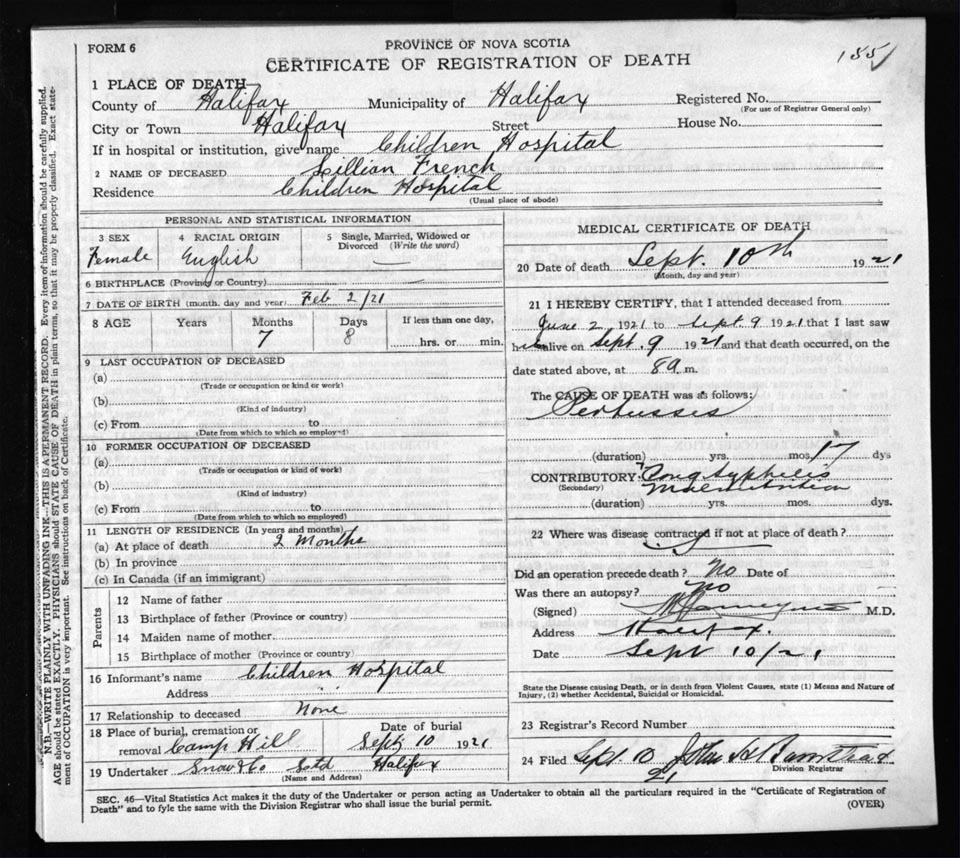 FORM 6
PROVINCE OF NOVA SCOTIA
CERTIFICATE OF REGISTRATION OF DEATH
1 PLACE OF DEATH—
County of Halifax Municipality of Halifax Registered No.
(For use of Registrar General only)
City or Town Halifax Street House No.
If in hospital or institution, give name Children Hospital
2 NAME OF DECEASED Lillian French
Residence Children Hospital
(Usual place of abode)
PERSONAL AND STATISTICAL INFORMATION
3 SEX 4 RACIAL ORIGIN 5 Single, Married, Widowed or Divorced (Write the word)
Female English
6 BIRTHPLACE (Province or Country)
7 DATE OF BIRTH (month, day and year) Feb 2/21
8 AGE Years Months Days If less than one day,
7 8 hrs. or min.
9 LAST OCCUPATION OF DECEASED
(a)
(Trade or occupation or kind or work)
(b)
(Kind of industry)
(c) From to
(Date from which to which so employed)
10 FORMER OCCUPATION OF DECEASED
(a)
(Trade or occupation or kind of work)
(b)
(Kind of industry)
(c) From to
(Date from which to which so employed)
11 LENGTH OF RESIDENCE (In years and months)
(a) At place of death 2 Months
(b) In province
(c) In Canada (if an immigrant)
Parents
12 Name of father
13 Birthplace of father (Province or country)
14 Maiden name of mother
15 Birthplace of mother (Province or country)
16 Informant's name Children Hospital
Address
17 Relationship to deceased None
18 Place of burial, cremation or removal Camp Hill
Date of burial Sept 10 1921
19 Undertaker Snow & Co Ltd Halifax
(Name and Address)
MEDICAL CERTIFICATE OF DEATH
20 Date of death Sept. 10th 1921
(Month, day and year)
21 I HEREBY CERTIFY, that I attended deceased from
June 2 1921 to Sept. 9 1921 that I last saw
her alive on Sept. 9 1921 and that death occurred, on the
date stated above, at 8 a. m.
The CAUSE OF DEATH was as follows:
Pertussis
(duration) yrs. mos. 17 dys
CONTRIBUTORY Cong Syphilis
(Secondary) Malnutrition
(duration) yrs. mos. dys.
22 Where was disease contracted if not at place of death?
Did an operation precede death? No Date of
Was there an autopsy? No
(Signed) M.D.
Address
Date Sept 10/21
State the Disease causing Death, or in death from Violent Causes, state (1) Means and Nature of
Injury, (2) whether Accidental, Suicidal or Homicidal.
23 Registrar's Record Number
24 Filed Sept. 10 21 John
Division Registrar
SEC. 46—Vital Statistics Act makes it the duty of the Undertaker or person acting as Undertaker to obtain all the particulars required in the "Certificate of Registration of
Death" and to fyle the same with the Division Registrar who shall issue the burial permit.
(OVER)
N.B.—WRITE PLAINLY WITH UNFADING INK—THIS IS A PERMANENT RECORD. Every item of information should be carefully supplied.
AGE should be stated EXACTLY. PHYSICIANS should STATE CAUSE OF DEATH in plain terms, so that it may be properly classified. Exact state-
ment of OCCUPATION is very important. See instructions on back of Certificate.